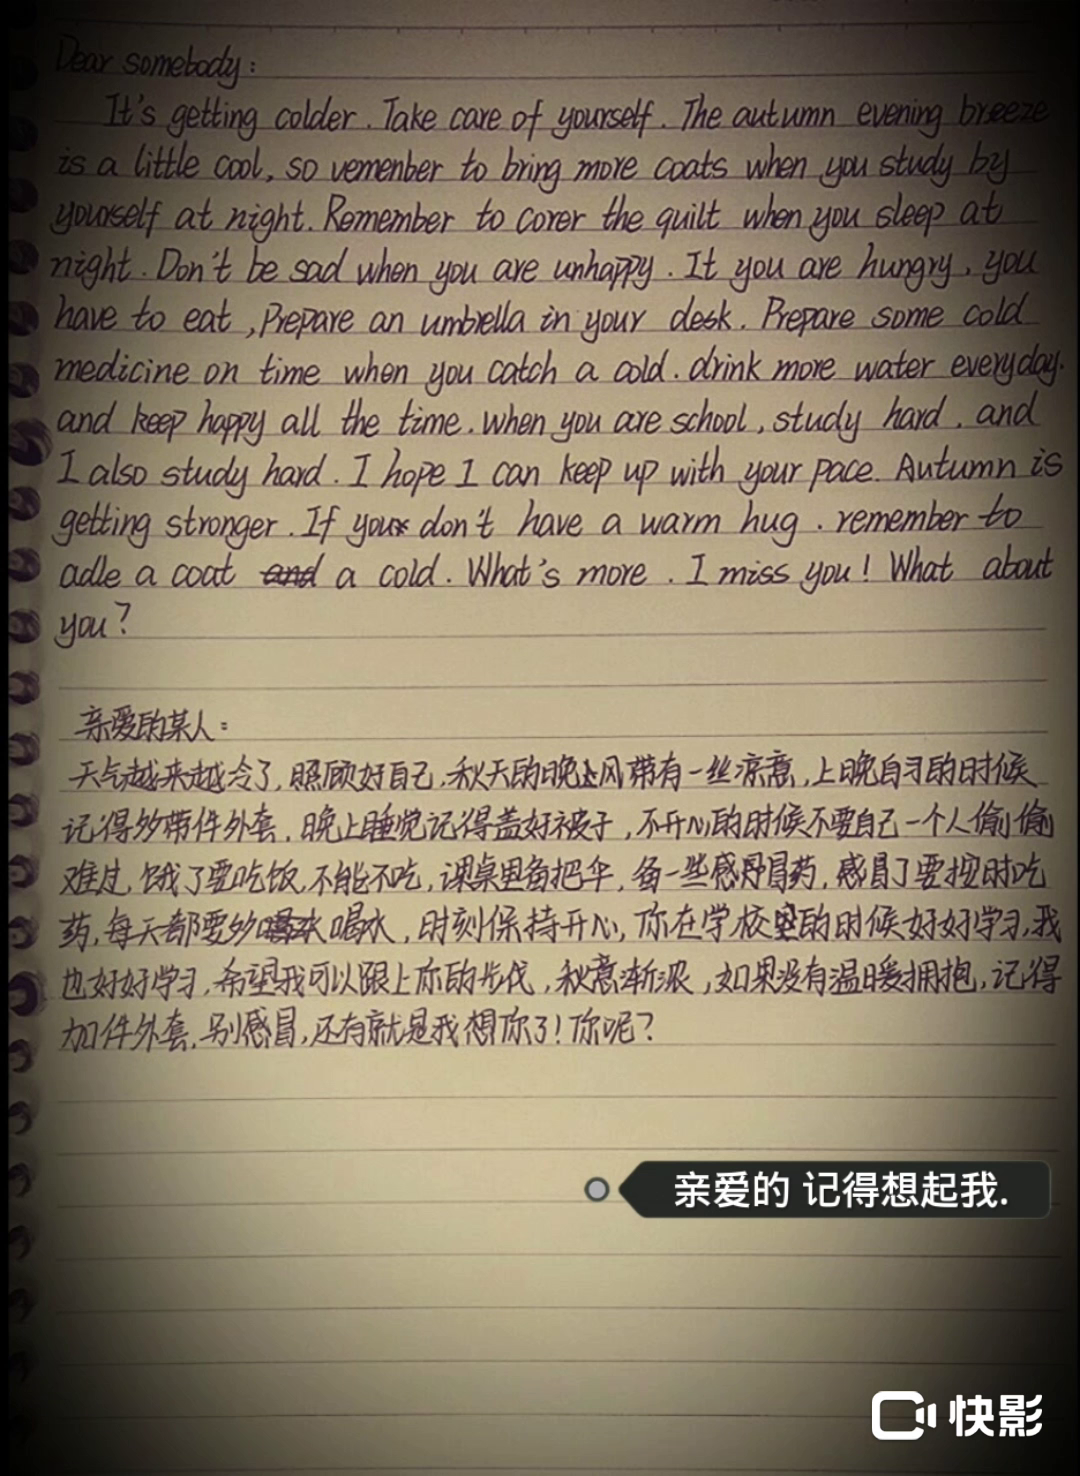 Dear somebody:
It's getting colder. Take care of yourself. The autumn evening breeze
is a little cool, so vemenber to bring more coats when you study by
yourself at night. Remember to corer the quilt when you sleep at
night. Don't be sad when you are unhappy. It you are hungry, you
have to eat, Prepare an umbrella in your desk. Prepare some cold
medicine on time when you catch a cold. drink more water everyday.
and keep happy all the time. when you are school, study hard. and
I also study hard. I hope I can keep up with your pace. Autumn is
getting stronger. If you don't have a warm hug. remember to
adle a coat and a cold. What's more. I miss you! What about
you?
亲爱的某人:
天气越来越冷了,照顾好自己,秋天的晚上风带有一丝凉意,上晚自习的时候
记得多带件外套,晚上睡觉记得盖好被子,不开心的时候不要自己一个人偷偷
难过,饿了要吃饭,不能不吃,课桌里备把伞,备一些感冒药,感冒了要按时吃
药,每天都要多喝水,时刻保持开心,你在学校里的时候好好学习,我
也好好学习,希望我可以跟上你的步伐,秋意渐浓,如果没有温暖拥抱,记得
加件外套,别感冒,还有就是我想你了!你呢?
亲爱的 记得想起我.
快影